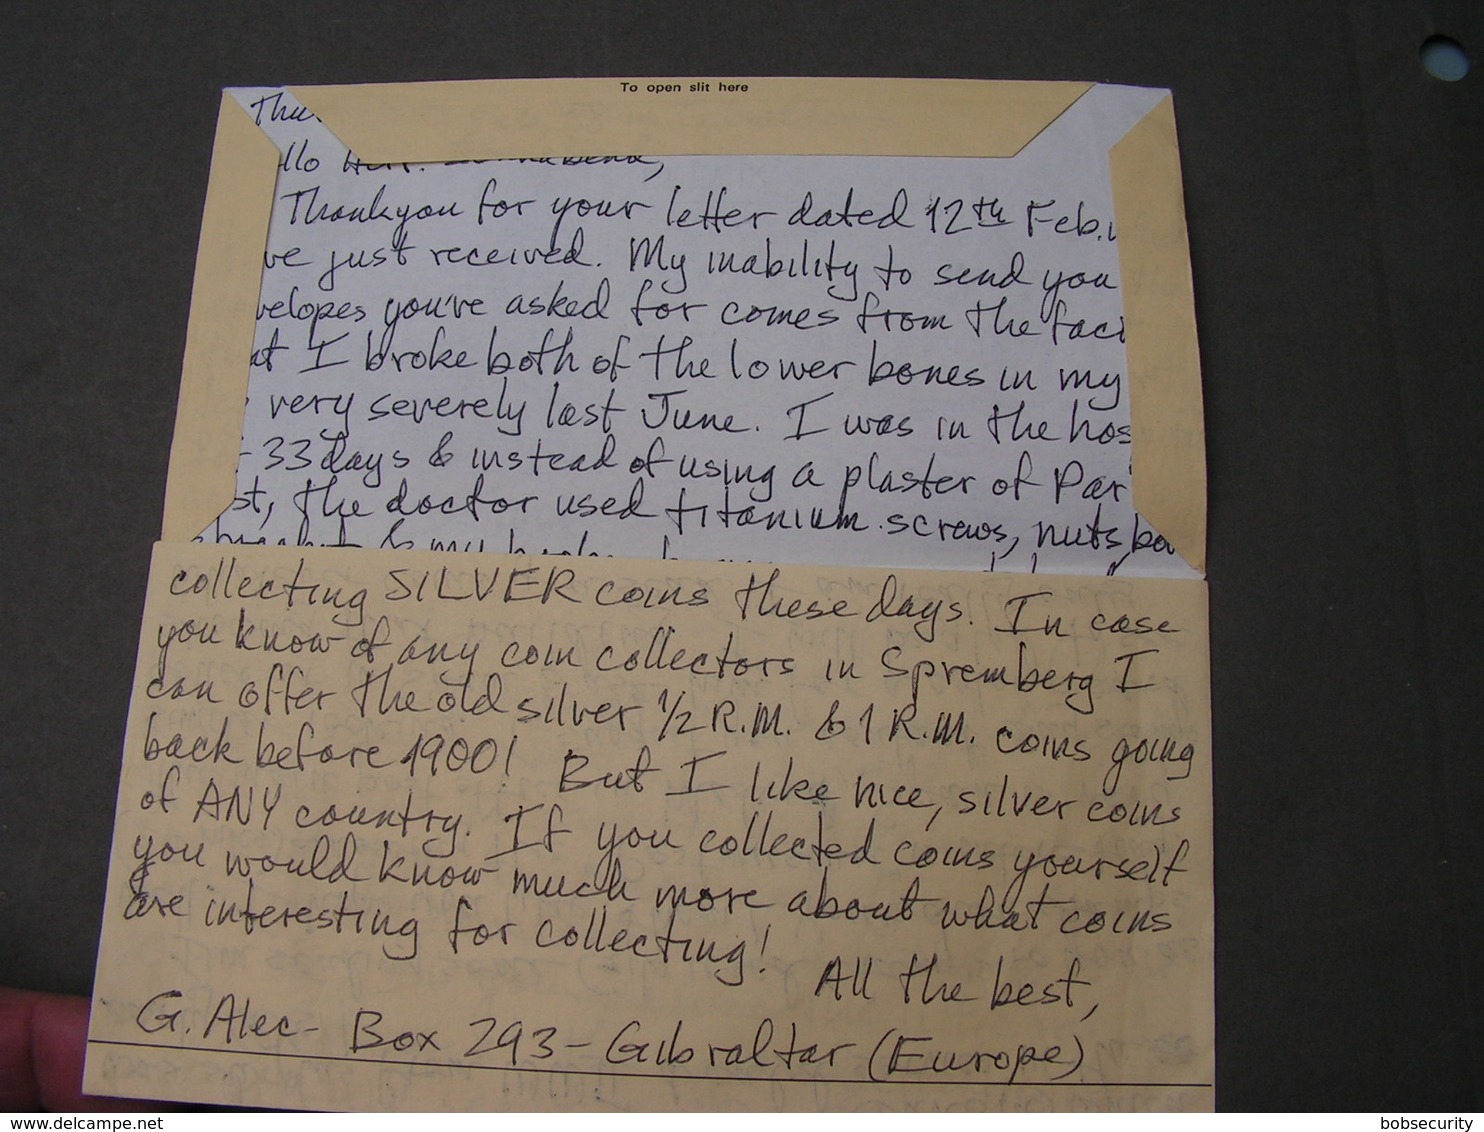 To open slit here
llo
Thankyou for your letter dated 12th Feb.
ve just received. My inability to send you
velopes you've asked for comes from the fact
at I broke both of the lower bones in my
very severely last June. I was in the hos
33 days & instead of using a plaster of Par
st, the doctor used titanium screws, nuts bo
& my
collecting SILVER coins these days. In case
you know of any coin collectors in Spremberg I
can offer the old silver 1/2 R.M. & 1 R.M. coins going
back before 1900! But I like nice, silver coins
of ANY country. If you collected coins yourself
you would know much more about what coins
are interesting for collecting!
All the best,
G. Alec - Box 293 - Gibraltar (Europe)
delcampe.net
bobsecurity